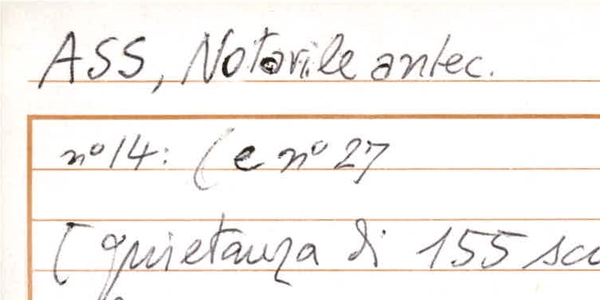 ASS, Notarile antec.
n° 14: (e n° 27
[quietanza di 155 scu